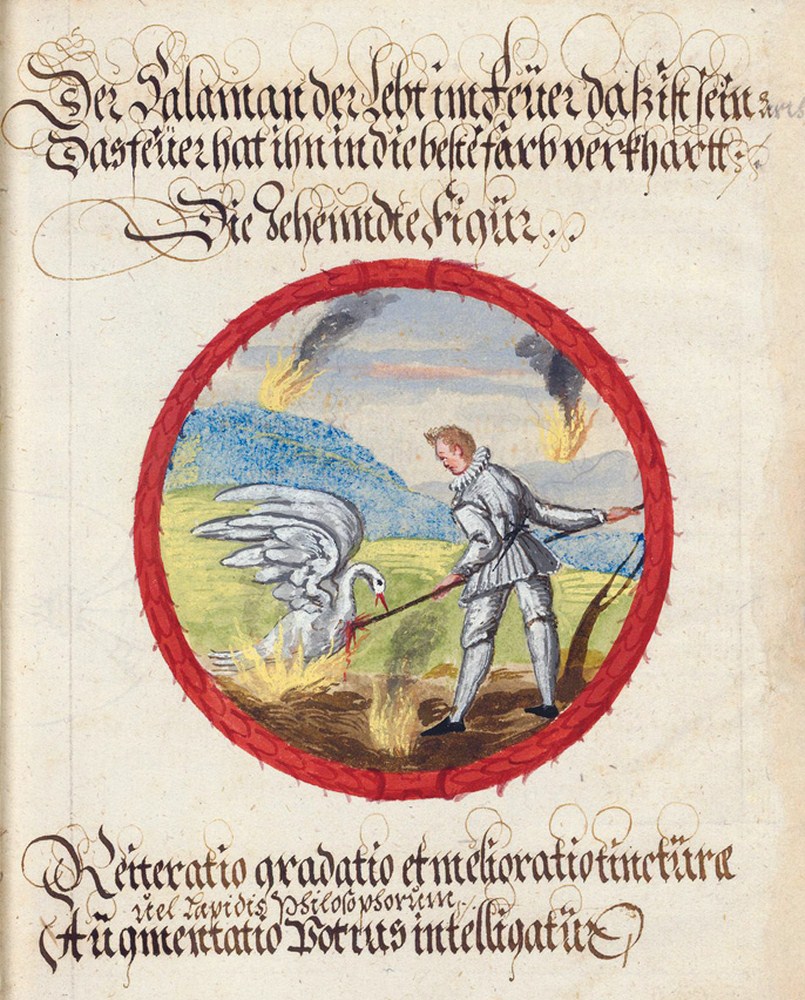 Der Salamander lebt im feüer daß ist sein
Das feüer hat ihn in die beste farb verkhartt.
Die Zehenndte Figür.
Reiteratio gradatio et melioratio tincturæ
vel Lapidis Philosophorum.
Augmentatio Potius intelligatür